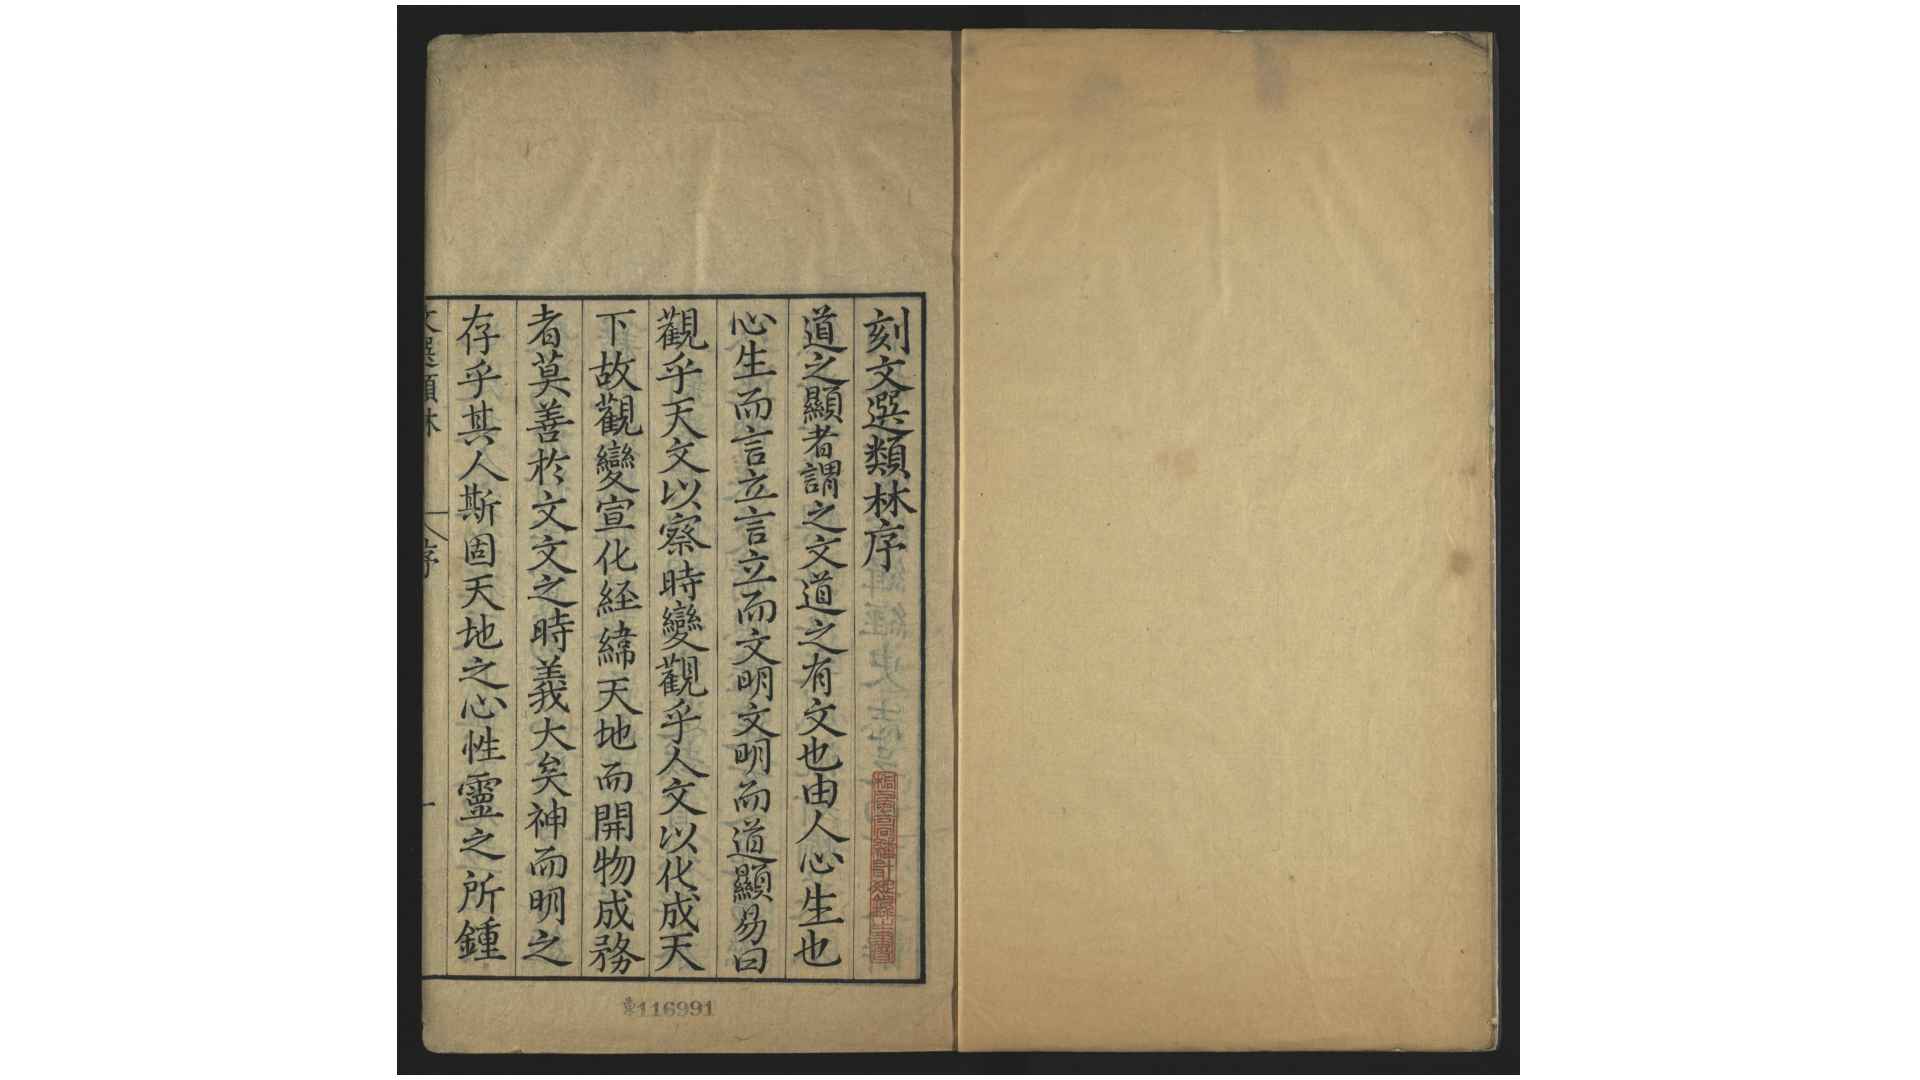 刻文選類林序
道之顯者謂之文道之有文也由人心生也
心生而言立言立而文明文明而道顯易曰
觀乎天文以察時變觀乎人文以化成天
下故觀變宣化経緯天地而開物成務
者莫善於文文之時義大矣神而明之
存乎其人斯固天地之心性靈之所鍾
文選類林
序
一
116991